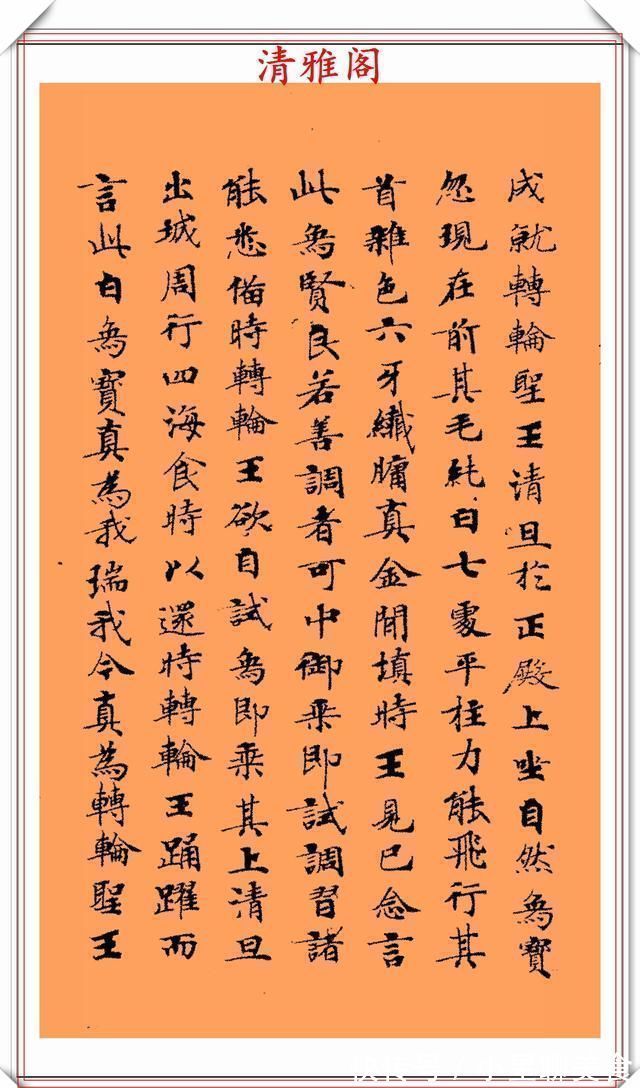 清雅阁
成就轉輪聖王清旦於正殿上坐自然象寶
忽現在前其毛純白七處平柱力能飛行其
首雜色六牙纖𦟛真金間填時王見已念言
此象賢良若善調者可中御乘即試調習諸
能悉俻時轉輪王欲自試象即乘其上清旦
出城周行四海食時以還時轉輪王踊躍而
言此白象寶真為我瑞我今真為轉輪聖王